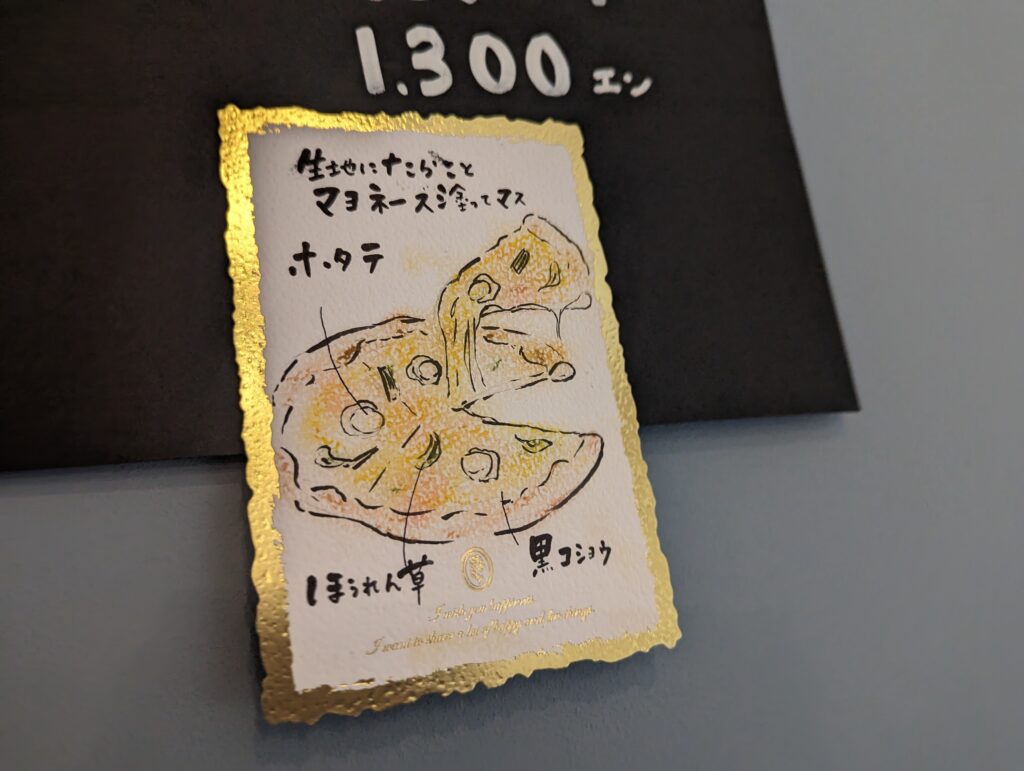 1.300 エン
生地にたらこと
マヨネーズ塗ってマス
ホタテ
ほうれん草
黒コショウ
I wish you happiness.
I want to share a lot of happy and fun things.